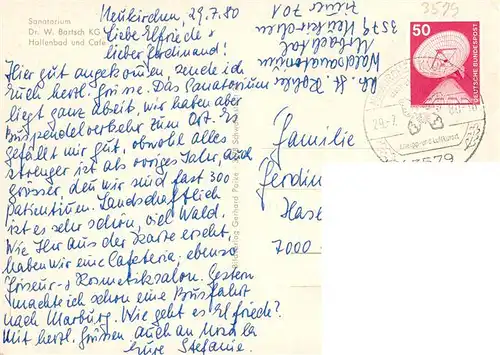 Sanatorium
Dr. W. Bartsch KG
Hallenbad und Café
Neukirchen, 29.7.80
Liebe Elfriede &
lieber Ferdinand!
Hier gut angekommen, sende ich
Euch herzl. Grüsse. Das Sanatorium
liegt ganz abseits, wir haben aber
Buspendelverkehr zum Ort. Es
gefällt mir gut, obwohl alles
strenger ist als voriges Jahr, auch
grösser, denn wir sind fast 300
Patienten. Landschaftlich
ist es sehr schön, viel Wald.
Wie Ihr aus der Karte erseht,
haben wir eine Cafeteria, ebenso
Friseur- & Kosmetiksalon. Gestern
machte ich schon eine Busfahrt
nach Marburg. Wie geht es Elfriede?
Mit herzl. Grüssen auch an
Eure Stefanie.
Abs. St. Köhler
Waldsanatorium
Urbachtal
3579 Neukirchen
Zimmer 701
3579
50
DEUTSCHE BUNDESPOST
29.-7.
3579
Familie
Ferdin
Hase
7000
Verlag Gerhard Parke